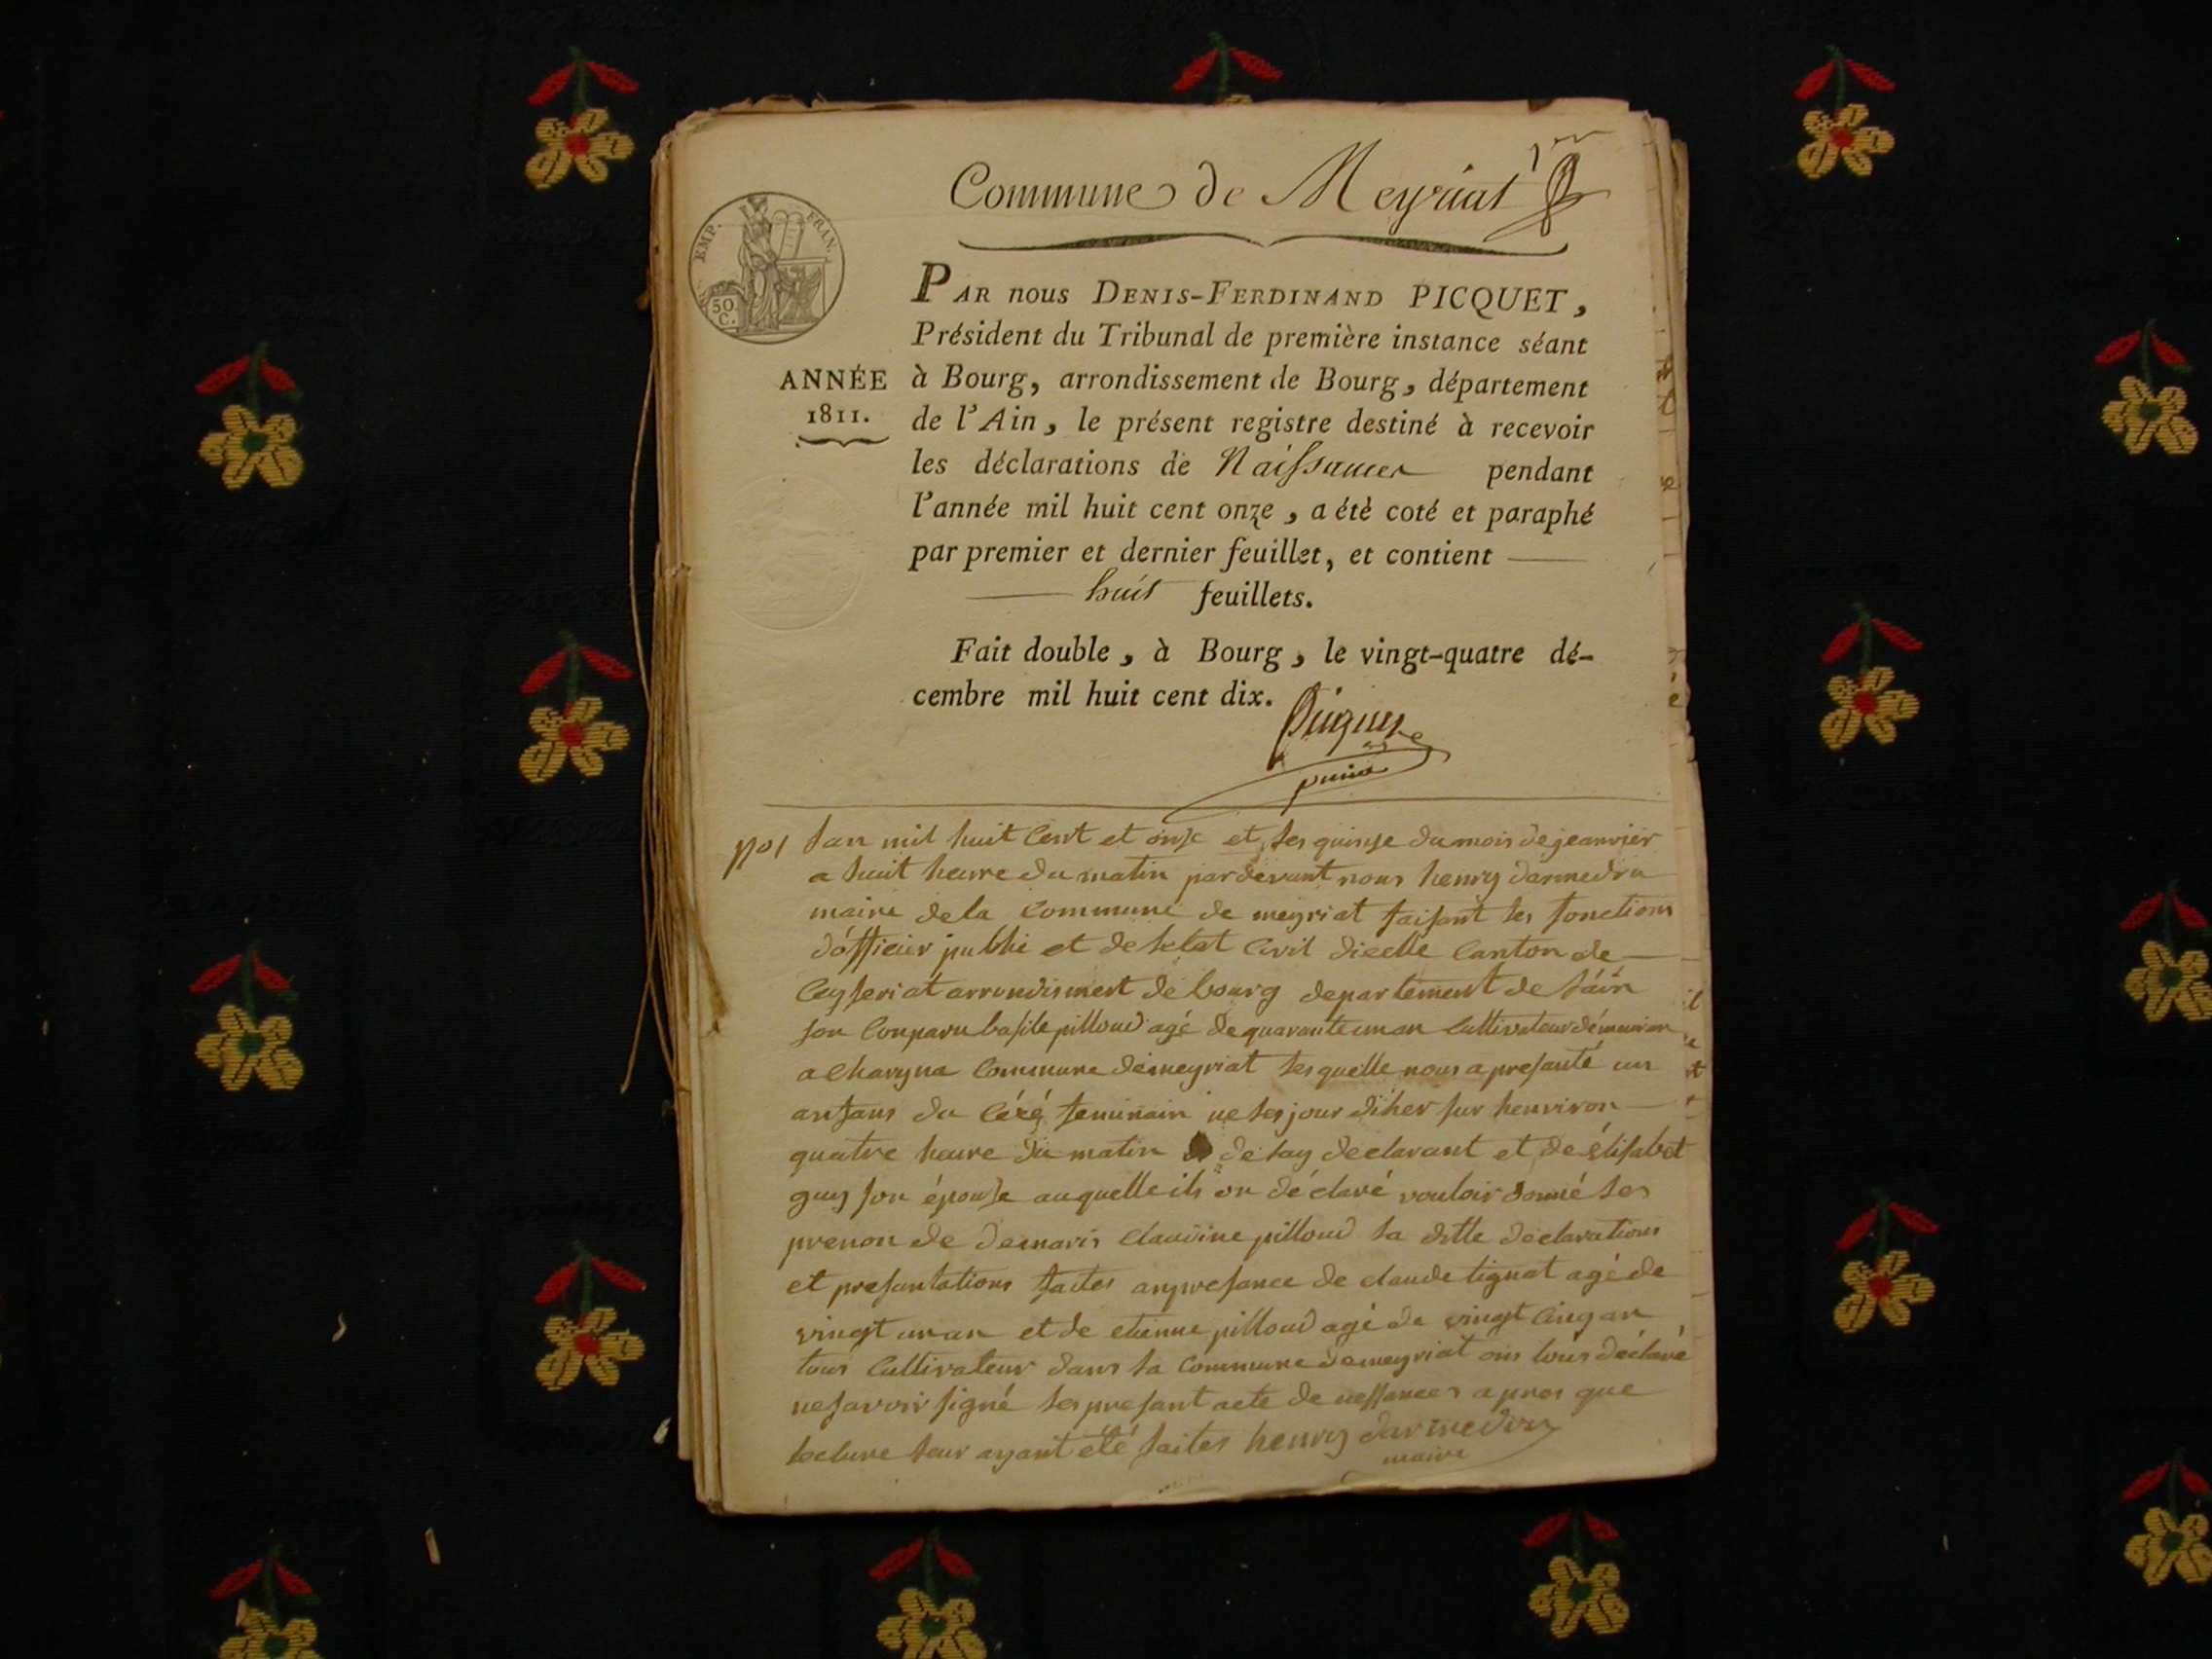 Commune de Meyriat
1er
EMP. FRAN.
50
C.
ANNÉE
1811.
PAR nous DENIS-FERDINAND PICQUET,
Président du Tribunal de première instance séant
à Bourg, arrondissement de Bourg, département
de l'Ain, le présent registre destiné à recevoir
les déclarations de Naissances pendant
l'année mil huit cent onze, a été coté et paraphé
par premier et dernier feuillet, et contient
huit feuillets.
Fait double, à Bourg, le vingt-quatre dé-
cembre mil huit cent dix.
Picquet
No 1 lan mil huit Cent et onze et les quinse du mois de jeanvier
a huit heure du matin pardevant nous henry darmedru
maire de la Commune de meyriat faisant les fonctions
d'officier publi et de letat Civil dicelle Canton de
Ceyseriat arrondisment de bourg departement de l'ain
son Conparu basile pilloud agé de quarante un an Cultivateur
a Commune de meyriat lesquelle nous a presanté un
anfans du Céxé feminain né les jour diher sur henviron
quatre heure du matin de luy declarant et de élisabet
guy son épouse auquelle ils on déclaré vouloir donné les
prenon de demaris Claudine pilloud la ditte declarations
et presantations faites anpresance de claude tignat agé de
vingt un an et de etienne pilloud agé de vingt Cinq an
tous Cultivateur dans la Commune de meyriat ons tous déclaré
ne savoir signé les presant acte de nessances apres que
lecture leur ayant été faites henry darmedru
maire